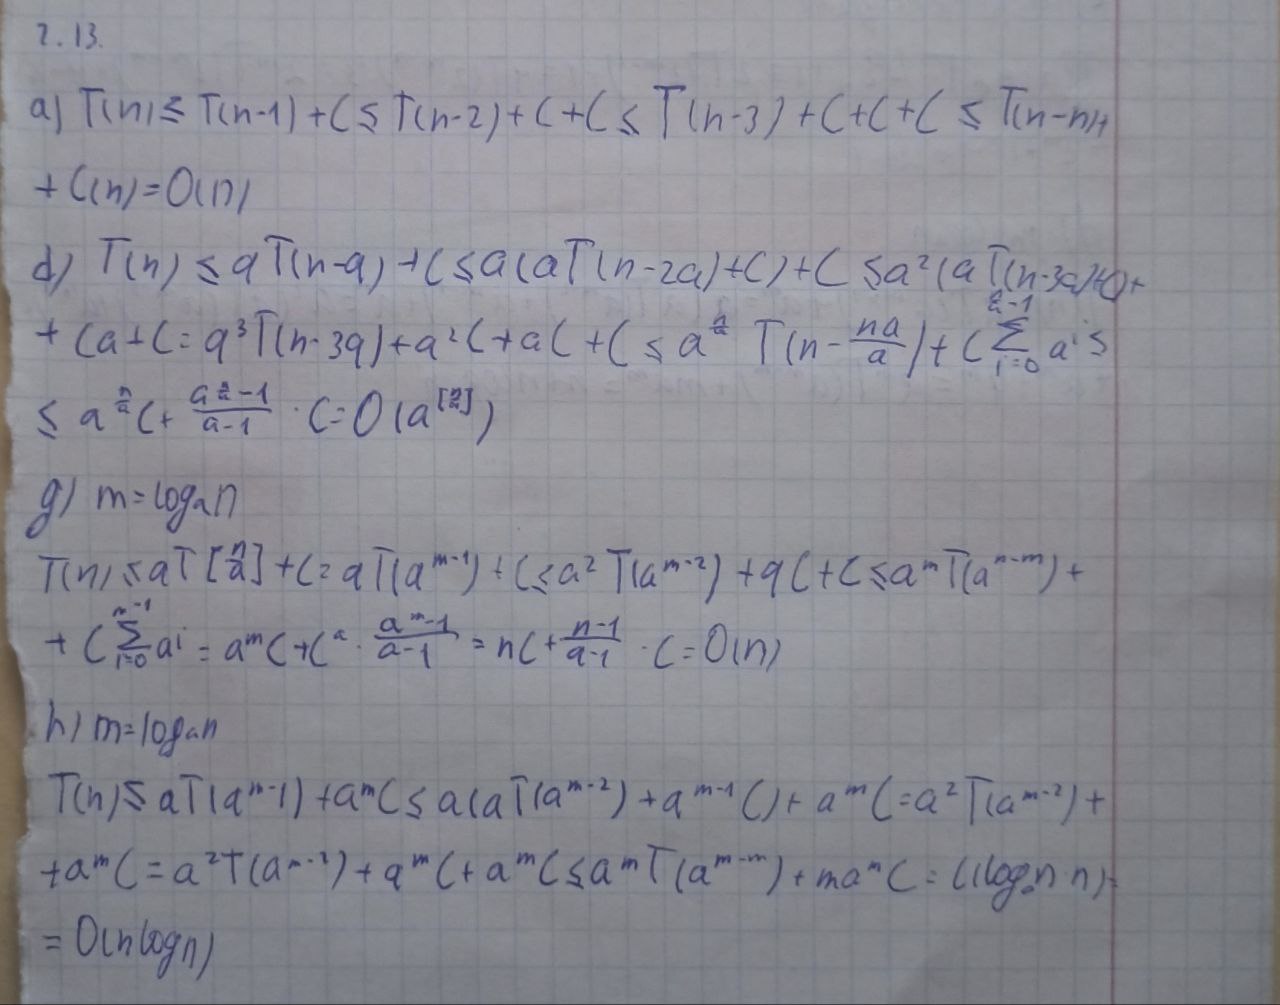 2.13.
a) T(n) ≤ T(n-1) + C ≤ T(n-2) + C + C ≤ T(n-3) + C + C + C ≤ T(n-n) +
+ C(n) = O(n)
d) T(n) ≤ aT(n-a) + C ≤ a(aT(n-2a) + C) + C ≤ a²(aT(n-3a)+C) +
+ Ca + C = a³T(n-3a) + a²C + aC + C ≤ a^(n/a) T(n - na/a) + C Σ_{i=0}^{n/a-1} a^i ≤
≤ a^(n/a) C + (a^(n/a) - 1)/(a-1) · C = O(a^[n/a])
g) m = log_a n
T(n) ≤ aT[n/a] + C = aT(a^(m-1)) + C ≤ a² T(a^(m-2)) + aC + C ≤ a^m T(a^(m-m)) +
+ C Σ_{i=0}^{m-1} a^i = a^m C + C · (a^m - 1)/(a-1) = nC + (n-1)/(a-1) · C = O(n)
h) m = log_a n
T(n) ≤ aT(a^(m-1)) + a^m C ≤ a(aT(a^(m-2)) + a^(m-1) C) + a^m C = a² T(a^(m-2)) +
+ a^m C = a² T(a^(m-2)) + a^m C + a^m C ≤ a^m T(a^(m-m)) + m a^m C = C(log_a n · n) =
= O(n log n)